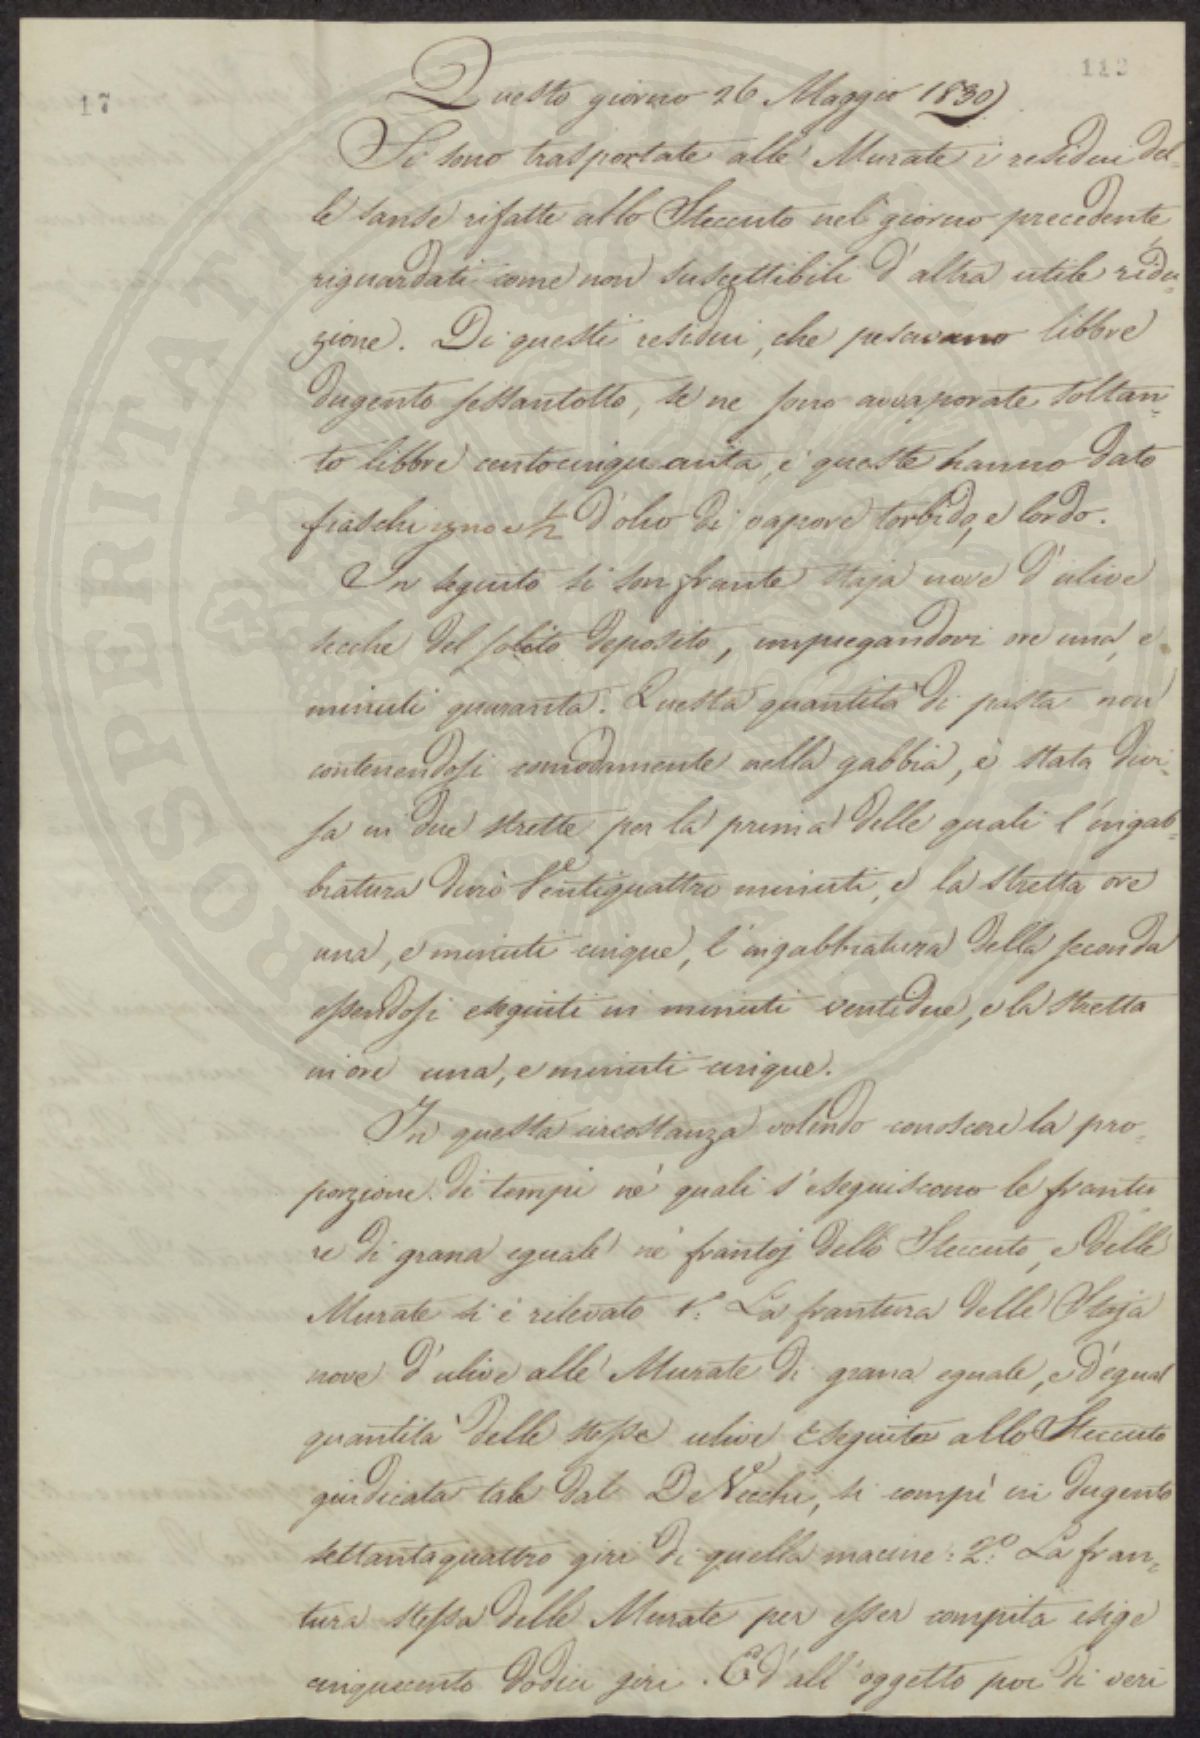 17
112
Questo giorno 26 Maggio 1830
Si sono trasportate alle Murate i residui del=
le sanse rifatte allo Steccuto nel giorno precedente
riguardati come non suscettibili d'altra utile ridu=
zione. Di questi residui, che pesavano libbre
dugento sessantotto, se ne sono avvaporate soltan=
to libbre centocinquanta, e queste hanno dato
fiaschi uno e ½ d'olio di vapore torbido, e lordo.
In seguito si son frante staja nove d'ulive
secche del solito deposito, impiegandovi ore una, e
minuti quaranta. Questa quantità di pasta non
contenendosi comodamente nella gabbia, è stata divi=
sa in due strette per la prima delle quali l'ingab=
biatura durò Ventiquattro minuti, e la stretta ore
una, e minuti cinque, l'ingabbiatura della seconda
essendosi eseguiti in minuti ventidue, e la stretta
in ore una, e minuti cinque.
In questa circostanza volendo conoscere la pro=
porzione di tempi ne' quali s'eseguiscono le frantu
re di grana eguale ne' frantoj dello Steccuto, e delle
Murate si è rilevato 1°: La frantura delle Staja
nove d'ulive alle Murate di grana eguale, e d'egual
quantità delle stesse ulive eseguita allo Steccuto
giudicata tale dal De Vecchi, si compì in dugento
settantaquattro giri di quella macine: 2°: La fran=
tura stessa delle Murate per esser compita esige
cinquecento dodici giri. Ed all'oggetto poi di veri
PROSPERITATI PUBLICAE